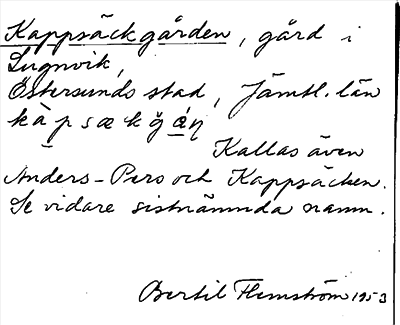 Kappsäckgården, gård i
Lugnvik,
Östersunds stad, Jämtl. län
Kallas även
Anders-Pers och Kappsäcken.
Se vidare sistnämnda namn.
Bertil Flemström 1953